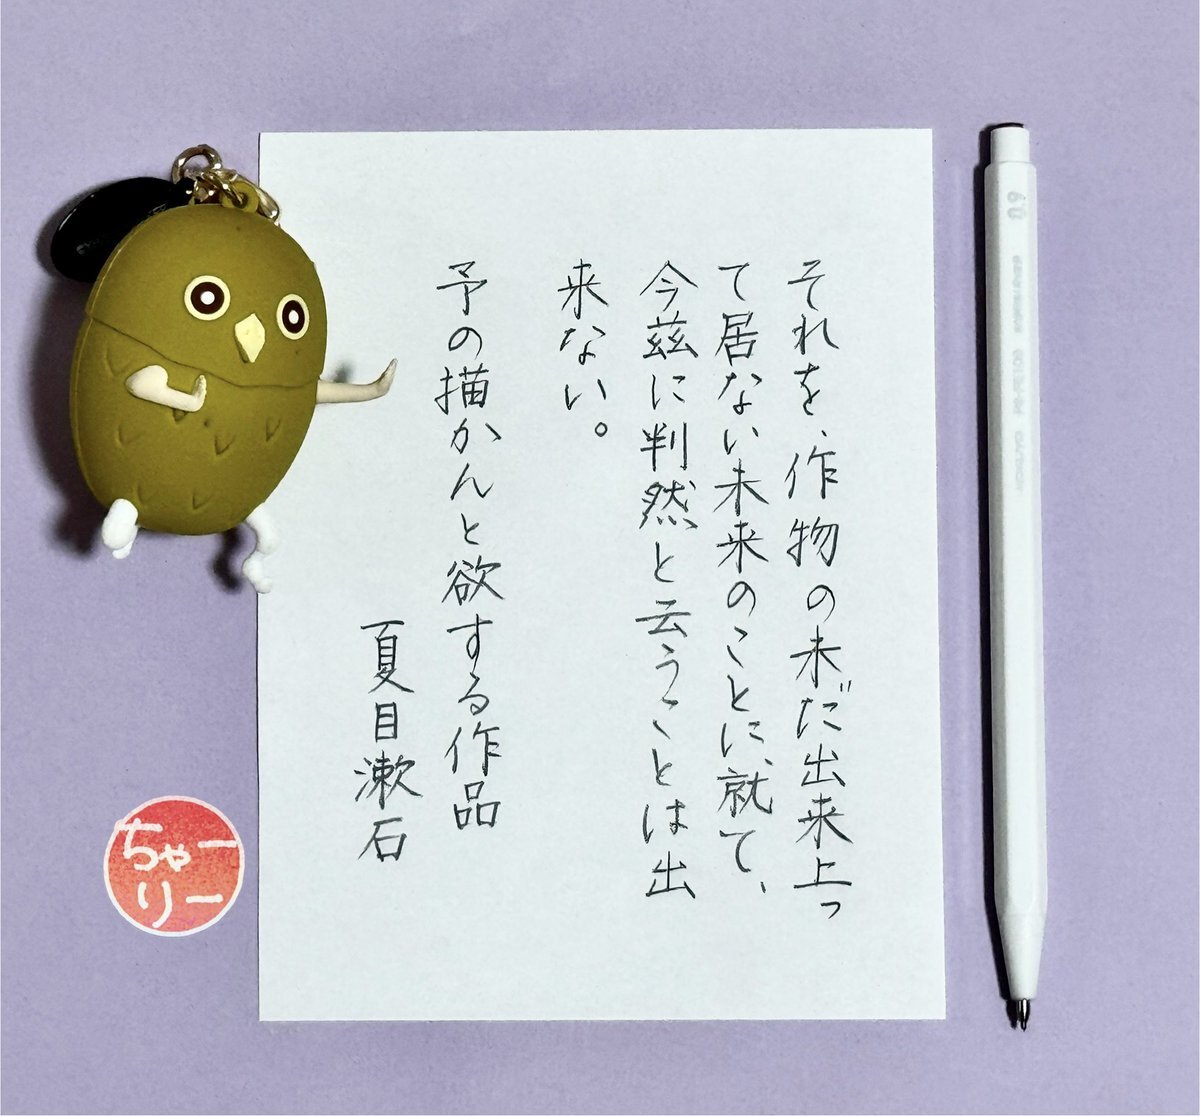 それを、作物の未だ出来上っ
て居ない未来のことに就て、
今茲に判然と云うことは出
来ない。
予の描かんと欲する作品
夏目漱石
ちゃー
りー
0.9